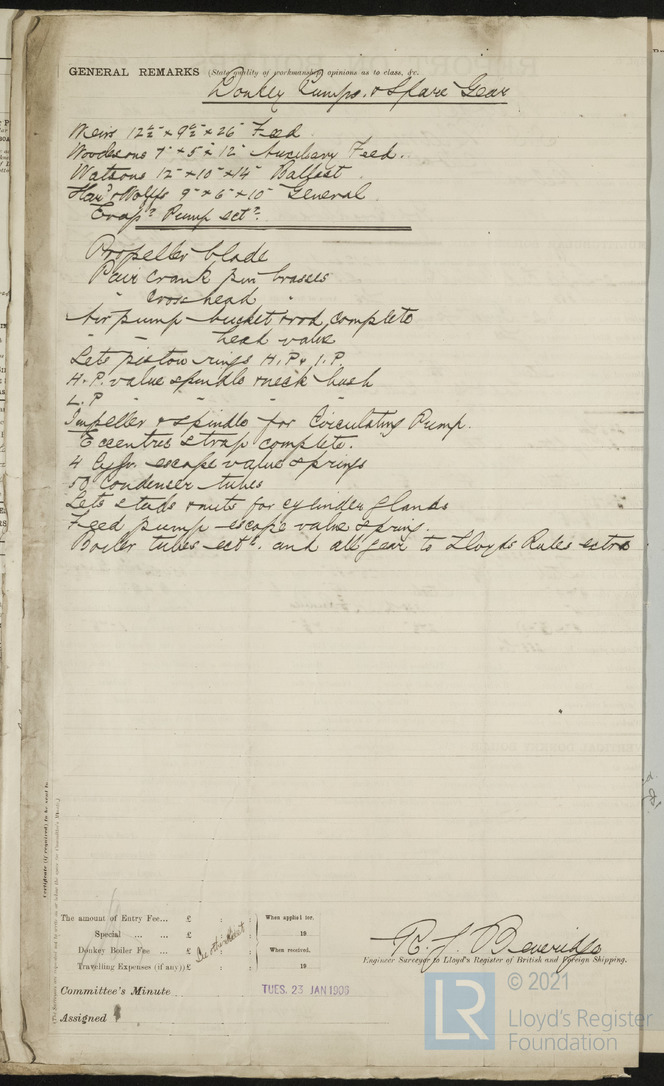 GENERAL REMARKS (State quality of workmanship, opinions as to class, &c.
Donkey Pumps. & Spare Gear
Weirs 12½ × 9½ × 26" Feed
Woodesons 7" × 5" × 12" Auxiliary Feed.
Watsons 12" × 10" × 14" Ballast
Har? & Wolffs 9" × 6" × 10" General
Evapr Pump ectr.
Propeller blade
Pair crank pin brasses
" Cross head "
Air pump bucket & rod complete
" " head valve
Sets piston rings H.P & I.P
H.P. valve spindle & neck bush
L.P " " " "
Impeller & spindle for Circulating Pump.
Eccentric strap complete.
4 Cylr. escape valve springs
50 Condenser tubes
Sets studs & nuts for cylinder glands
Feed pump escape valve spring.
Boiler tubes ectr. and all gear to Lloyds Rules extra
Certificate (if required) to be sent to
The amount of Entry Fee ... £ : : When applied for,
Special ... ... £ : : 19
Donkey Boiler Fee ... £ : : When received,
Travelling Expenses (if any) £ : : 19
R. J. Beveridge
Engineer Surveyor to Lloyd's Register of British and Foreign Shipping.
Committee's Minute TUES. 23 JAN 1906
Assigned
© 2021
LR
Lloyd's Register
Foundation